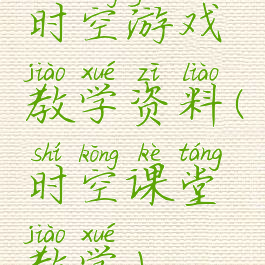 时空游戏
jiào xué zī liào
教学资料(
shí kōng kè táng
时空课堂
jiào xué
教学)